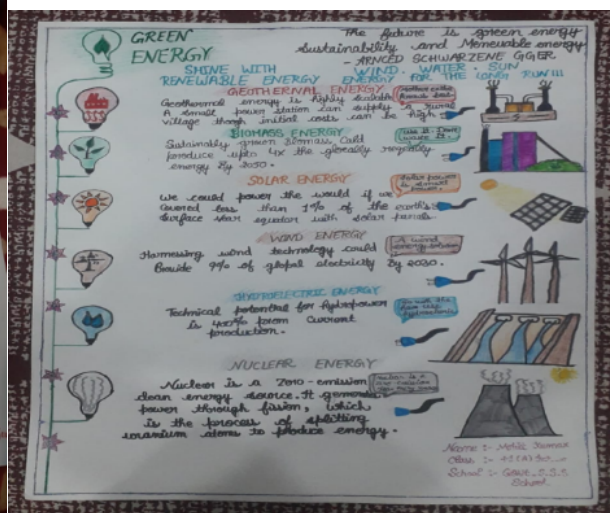 GREEN
ENERGY
The future is green energy
Sustainability and Renewable energy
- ARNCED SCHWARZENE GGER
SHINE WITH WIND, WATER, SUN
RENEWABLE ENERGY ENERGY FOR THE LONG RUN !!!
GEOTHERNAL ENERGY
Geothermal energy is highly
A small power station can supply a rural
village though initial costs can be high.
BIOMASS ENERGY
Sustainably green Biomass Could
produce upto 4x the globally
energy By 2030.
SOLAR ENERGY
Solar power
is smart
power.
We could power the would if we
Covered less than 1% of the earth's
Surface near equator with solar panals.
WIND ENERGY
A wind
energy
Harnessing wind technology could
Provide 9% of global electricity By 2030.
HYDROELECTRIC ENERGY
Technical potential for hydropower
is 400% from current
production.
NUCLEAR ENERGY
Nuclear is a
Nuclear is a zero-emission
clean energy source. It generate
power through fission, which
is the process of splitting
uranium atoms to produce energy.
Name :- Kumar
Class :-
School :- Govt. S.S.S
School.